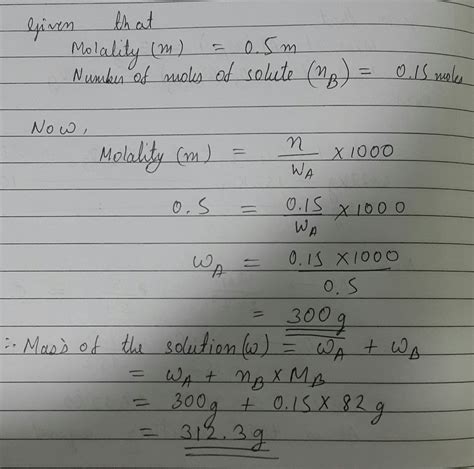 Given that
Molality (m) = 0.5 m
Number of moles of solute (n_B) = 0.15 moles
Now,
Molality (m) = n/W_A × 1000
0.5 = 0.15/W_A × 1000
W_A = 0.15 × 1000/0.5
= 300 g
∴ Mass of the solution (w) = W_A + W_B
= W_A + n_B × M_B
= 300g + 0.15 × 82 g
= 312.3 g